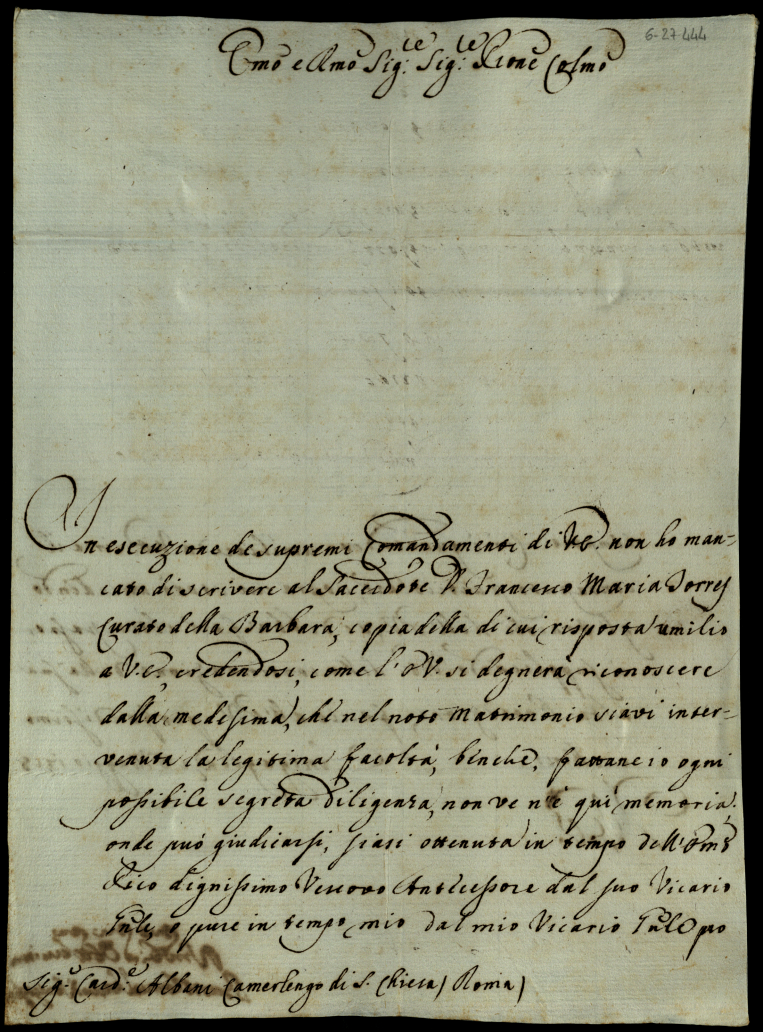 6-27444
Emo e Rmo Sig.re Sig.re Prone Colmo
In esecuzione de supremi Comandamenti di V.E. non ho man-
cato di scrivere al Sacerdote D. Francesco Maria Torres
Curato della Barbara, copia della di cui risposta umilio
a V.E., credendosi, come l'E.V. si degnerà riconoscere
dalla medesima, che nel noto Matrimonio siavi inter-
venuta la legitima facoltà, benche, fattane io ogni
possibile segreta diligenza, non ve n'è quì memoria.
onde può giudicarsi, siasi ottenuta in tempo dell'Emo
dignissimo Vescovo Antecessore dal suo Vicario
Gnle, o pure in tempo mio dal mio Vicario Gnle pro
Sig.e Card.e Albani Camerlengo di S. Chiesa / Roma /